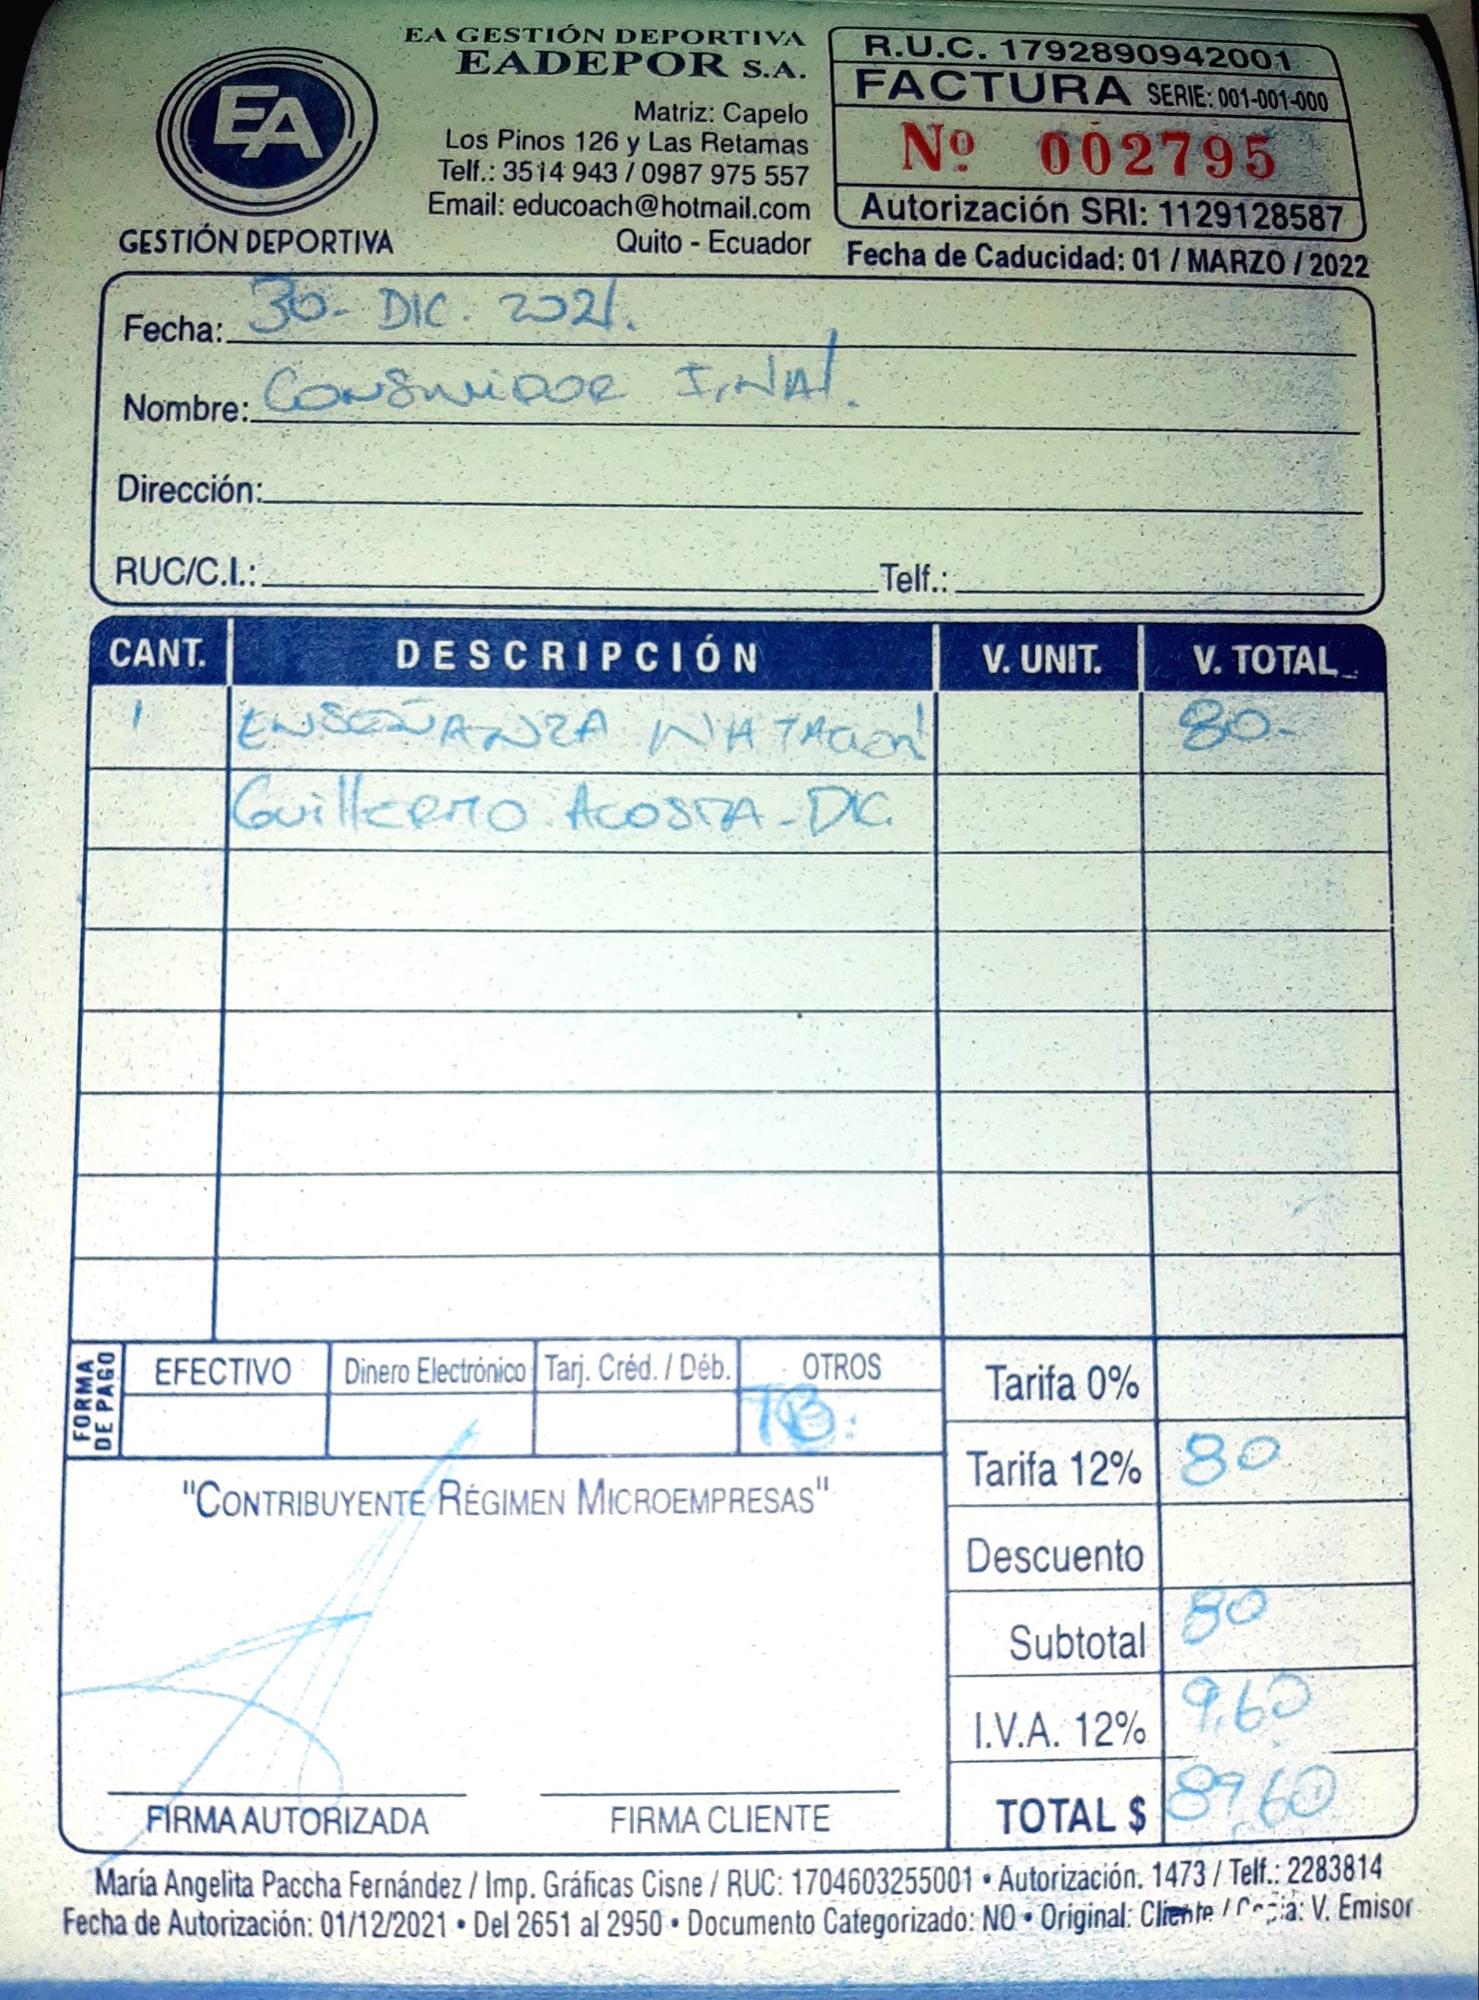 EA GESTIÓN DEPORTIVA
EADEPOR S.A.
EA
GESTIÓN DEPORTIVA
Matriz: Capelo
Los Pinos 126 y Las Retamas
Telf.: 3514 943 / 0987 975 557
Email: educoach@hotmail.com
Quito - Ecuador
R.U.C. 1792890942001
FACTURA SERIE: 001-001-000
Nº 002795
Autorización SRI: 1129128587
Fecha de Caducidad: 01 / MARZO / 2022
Fecha: 30- DIC. 2021.
Nombre: CONSUMIDOR FINAL.
Dirección:
RUC/C.I.: Telf.:
CANT. DESCRIPCIÓN V. UNIT. V. TOTAL
1 ENSEÑANZA NATACION 80-
Guillermo Acosta - DIC.
FORMA DE PAGO
EFECTIVO Dinero Electrónico Tarj. Créd. / Déb. OTROS
TB.
Tarifa 0%
Tarifa 12% 80
Descuento
Subtotal 80
I.V.A. 12% 9,60
TOTAL $ 89,60
"CONTRIBUYENTE RÉGIMEN MICROEMPRESAS"
FIRMA AUTORIZADA FIRMA CLIENTE
María Angelita Paccha Fernández / Imp. Gráficas Cisne / RUC: 1704603255001 • Autorización. 1473 / Telf.: 2283814
Fecha de Autorización: 01/12/2021 • Del 2651 al 2950 • Documento Categorizado: NO • Original: Cliente / Copia: V. Emisor